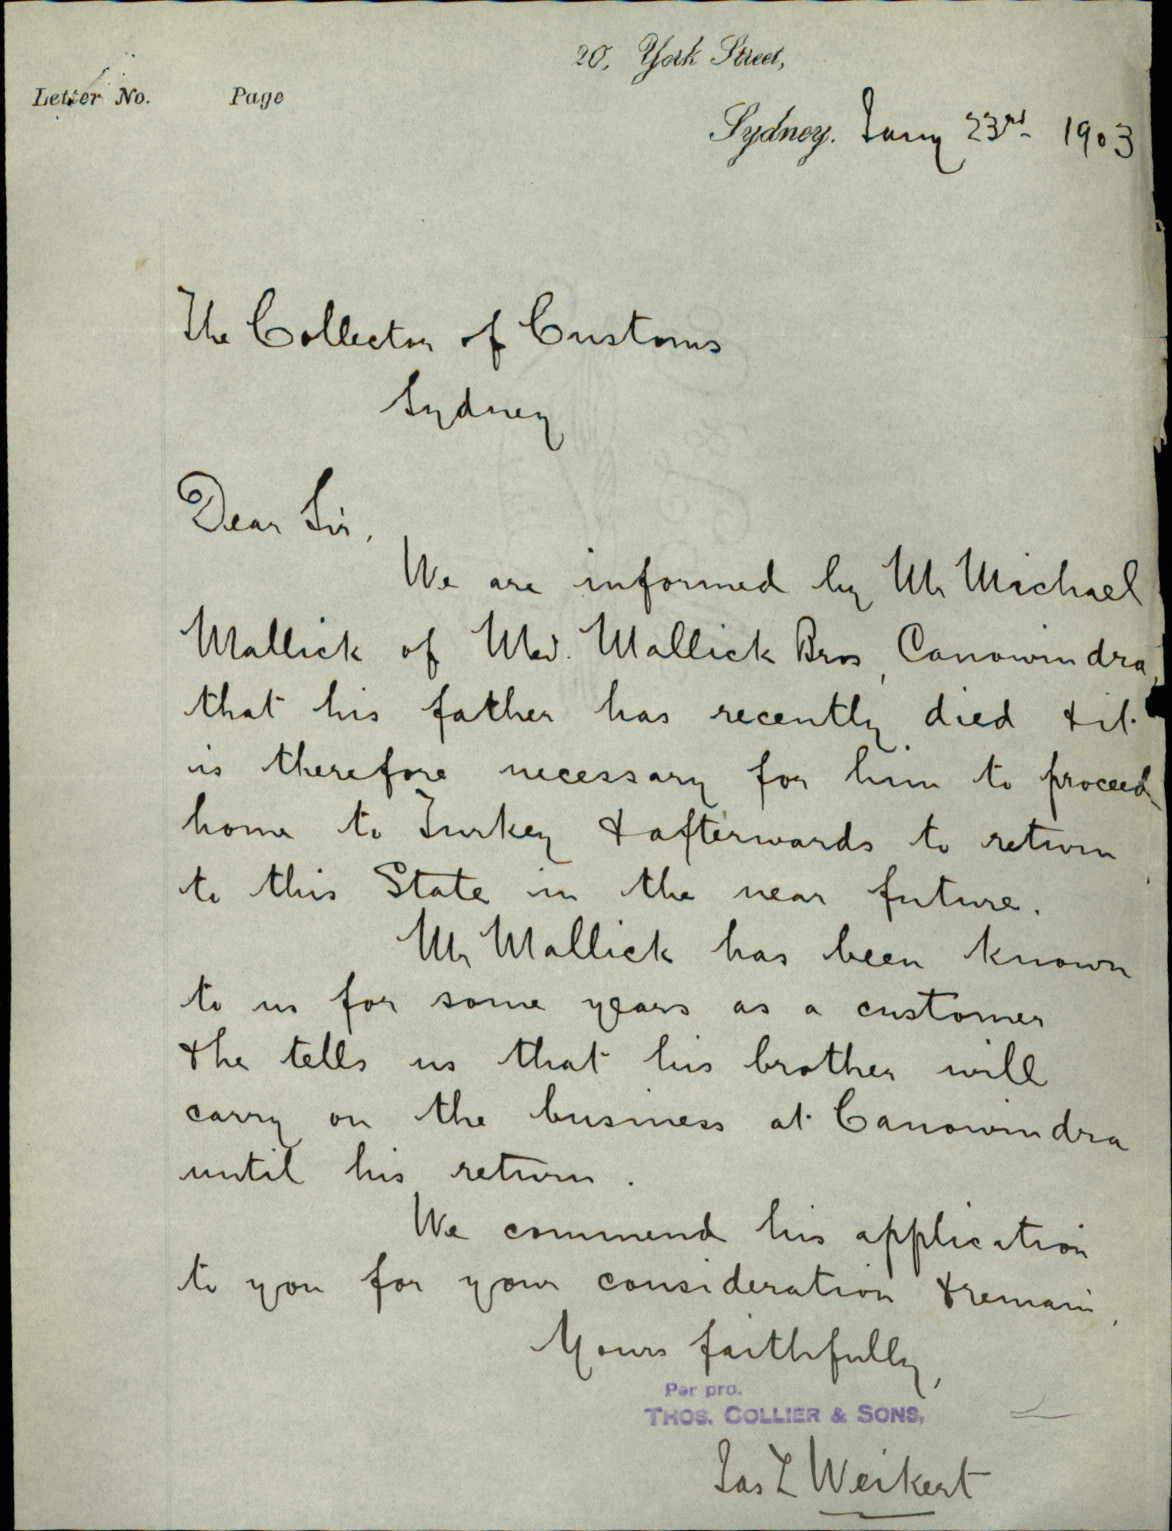 20, York Street,
Letter No. Page
Sydney. Jany 23rd 1903
The Collector of Customs
Sydney
Dear Sir,
We are informed by Mr Michael
Mallick of Mess. Mallick Bros, Canowindra,
that his father has recently died & it
is therefore necessary for him to proceed
home to Turkey & afterwards to return
to this State in the near future.
Mr Mallick has been known
to us for some years as a customer
& he tells us that his brother will
carry on the business at Canowindra
until his return.
We commend his application
to you for your consideration & remain,
Yours faithfully,
Per pro.
THOS. COLLIER & SONS,
Jas L Weikert